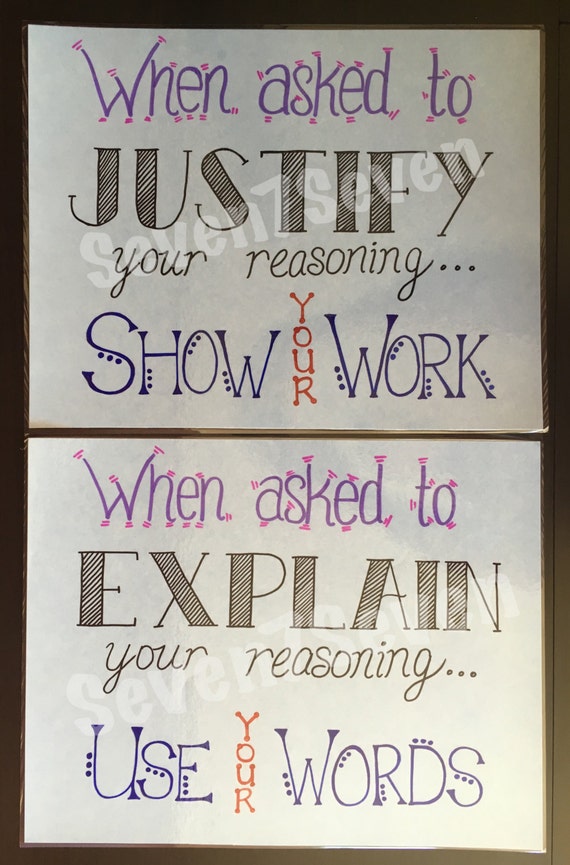 When asked to
JUSTIFY
your reasoning...
SHOW YOUR WORK
Seven7Seven
When asked to
EXPLAIN
your reasoning...
USE YOUR WORDS
Seven7Seven